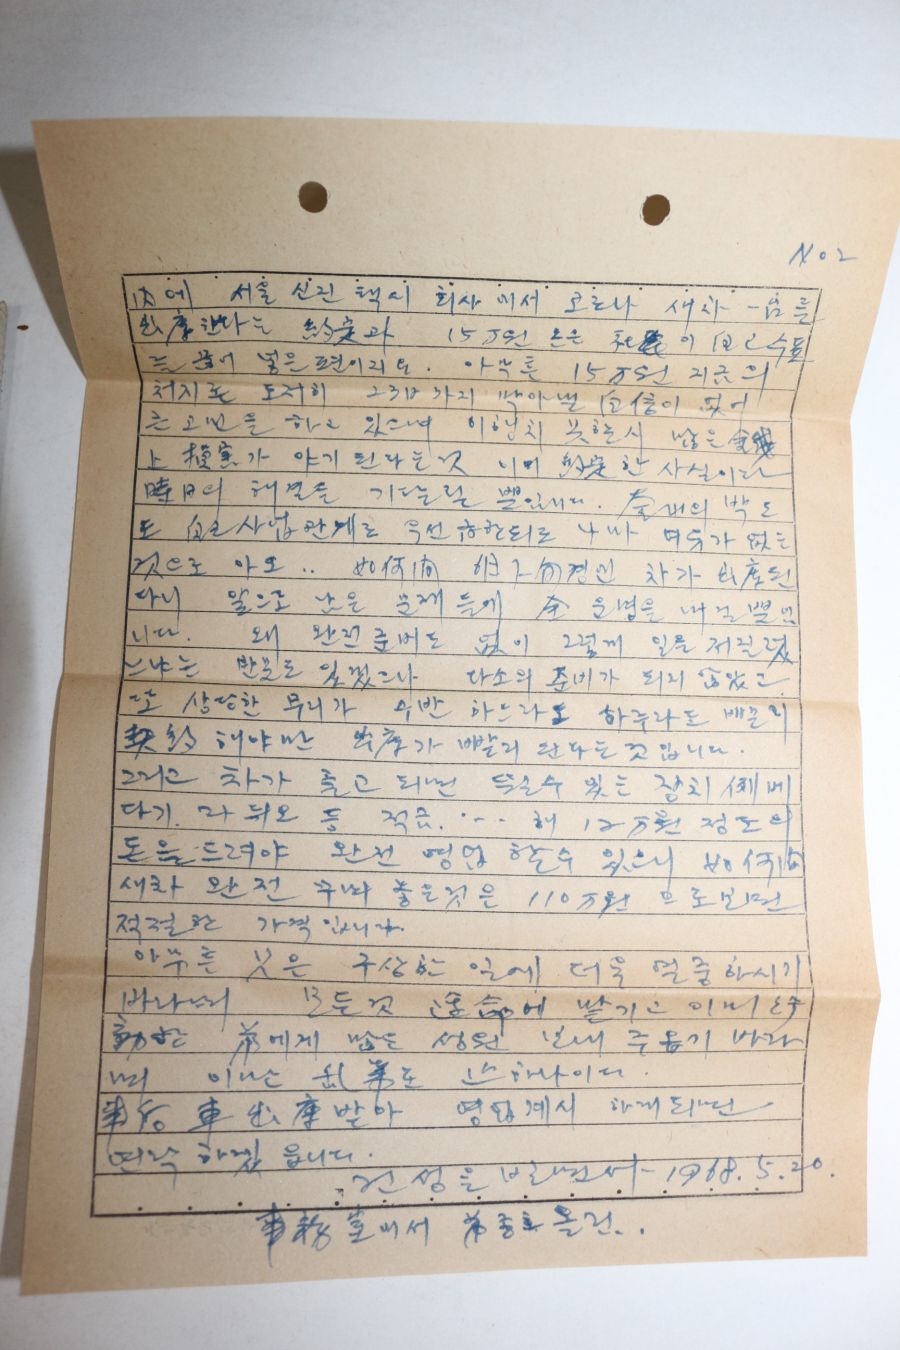 No 2
內에 서울 신진 택시 회사에서 코로나 새차 一台를
出庫한다는 約定과 15万원 돈은 이 수표
를 끊어 넣은 편이지요. 아무튼 15万원 지금의
처지론 도저히 까지 막아낼 自信이 없어
큰 고민을 하고 있으며 이행치 못할시 많은 金錢
上 損害가 야기 된다는것 이미 約定한 사실이라
時日의 해결을 기다릴 뿐입니다. 의 박
도 自己사업관계로 우선 나마 여유가 없는
것으로 아오.. 如何間 차가 出庫된
다니 앞으로 남은 문제들에 全 운명을 내걸뿐입
니다. 왜 완전준비도 없이 그렇게 일을 저질렀
느냐는 반문도 있겠으나 다소의 준비가 되지 않았고
또 상당한 무리가 수반 하드라도 하루라도 빨리
契約 해야만 出庫가 빨리 된다는것 입니다.
그리고 차가 출고 되면 장치 예메
다기. 라듸오 등 적금.… 해 12万원 정도의
돈을 드려야 완전 영업 할수 있으니 如何間
새차 완전 좋은것은 110万원 으로보면
적절한 가격입니다.
아무튼 兄은 구상한 일에 더욱 열중하시기
바라며 모든것 運命에 맡기고 이미
動한 弟에게 많은 성원 보내 주옵기 바라
며 이만 亂筆로 하나이다.
車 出庫받아 영업게시 하게되면
연락 하겠읍니다.
건승을 빌면서 1968. 5. 20.
事務室에서 弟 올림..